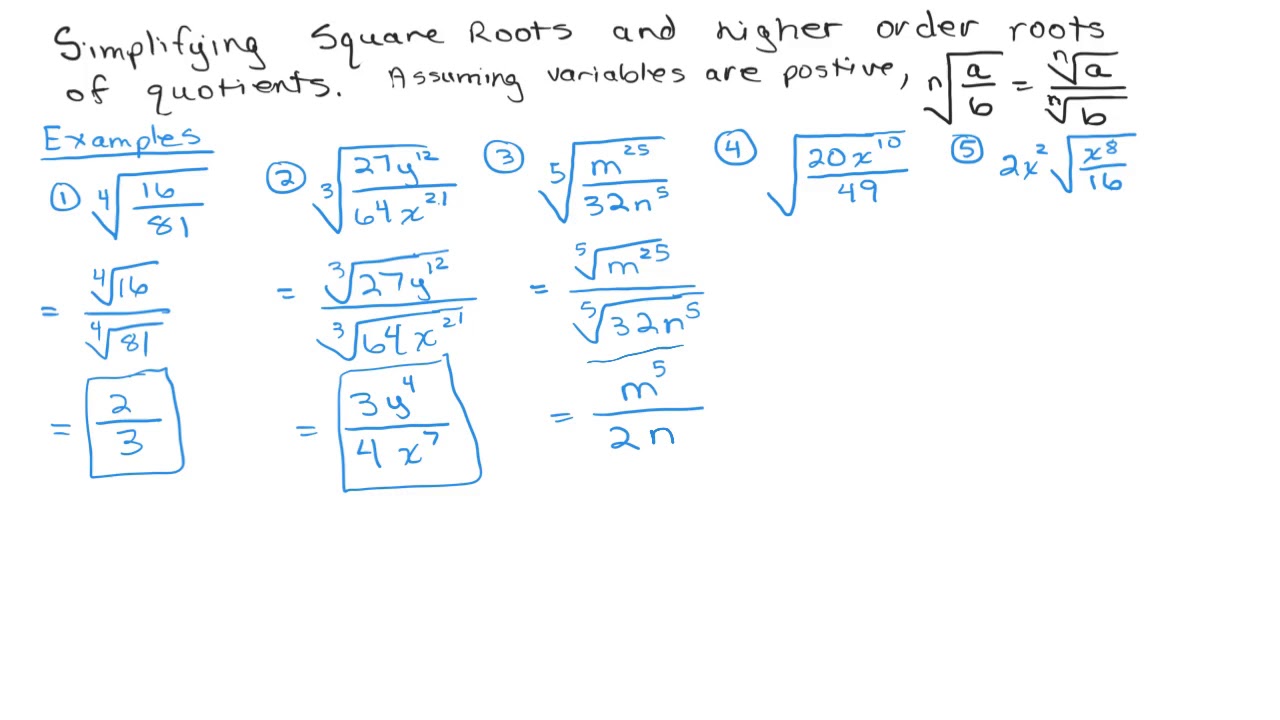 Simplifying Square Roots and higher order roots
of quotients. Assuming variables are postive, ⁿ√(a/b) = ⁿ√a / ⁿ√b
Examples
① ⁴√(16/81)
= ⁴√16 / ⁴√81
= 2/3
② ³√(27y¹²/64x²¹)
= ³√27y¹² / ³√64x²¹
= 3y⁴/4x⁷
③ ⁵√(m²⁵/32n⁵)
= ⁵√m²⁵ / ⁵√32n⁵
= m⁵/2n
④ √(20x¹⁰/49)
⑤ 2x² √(x⁸/16)